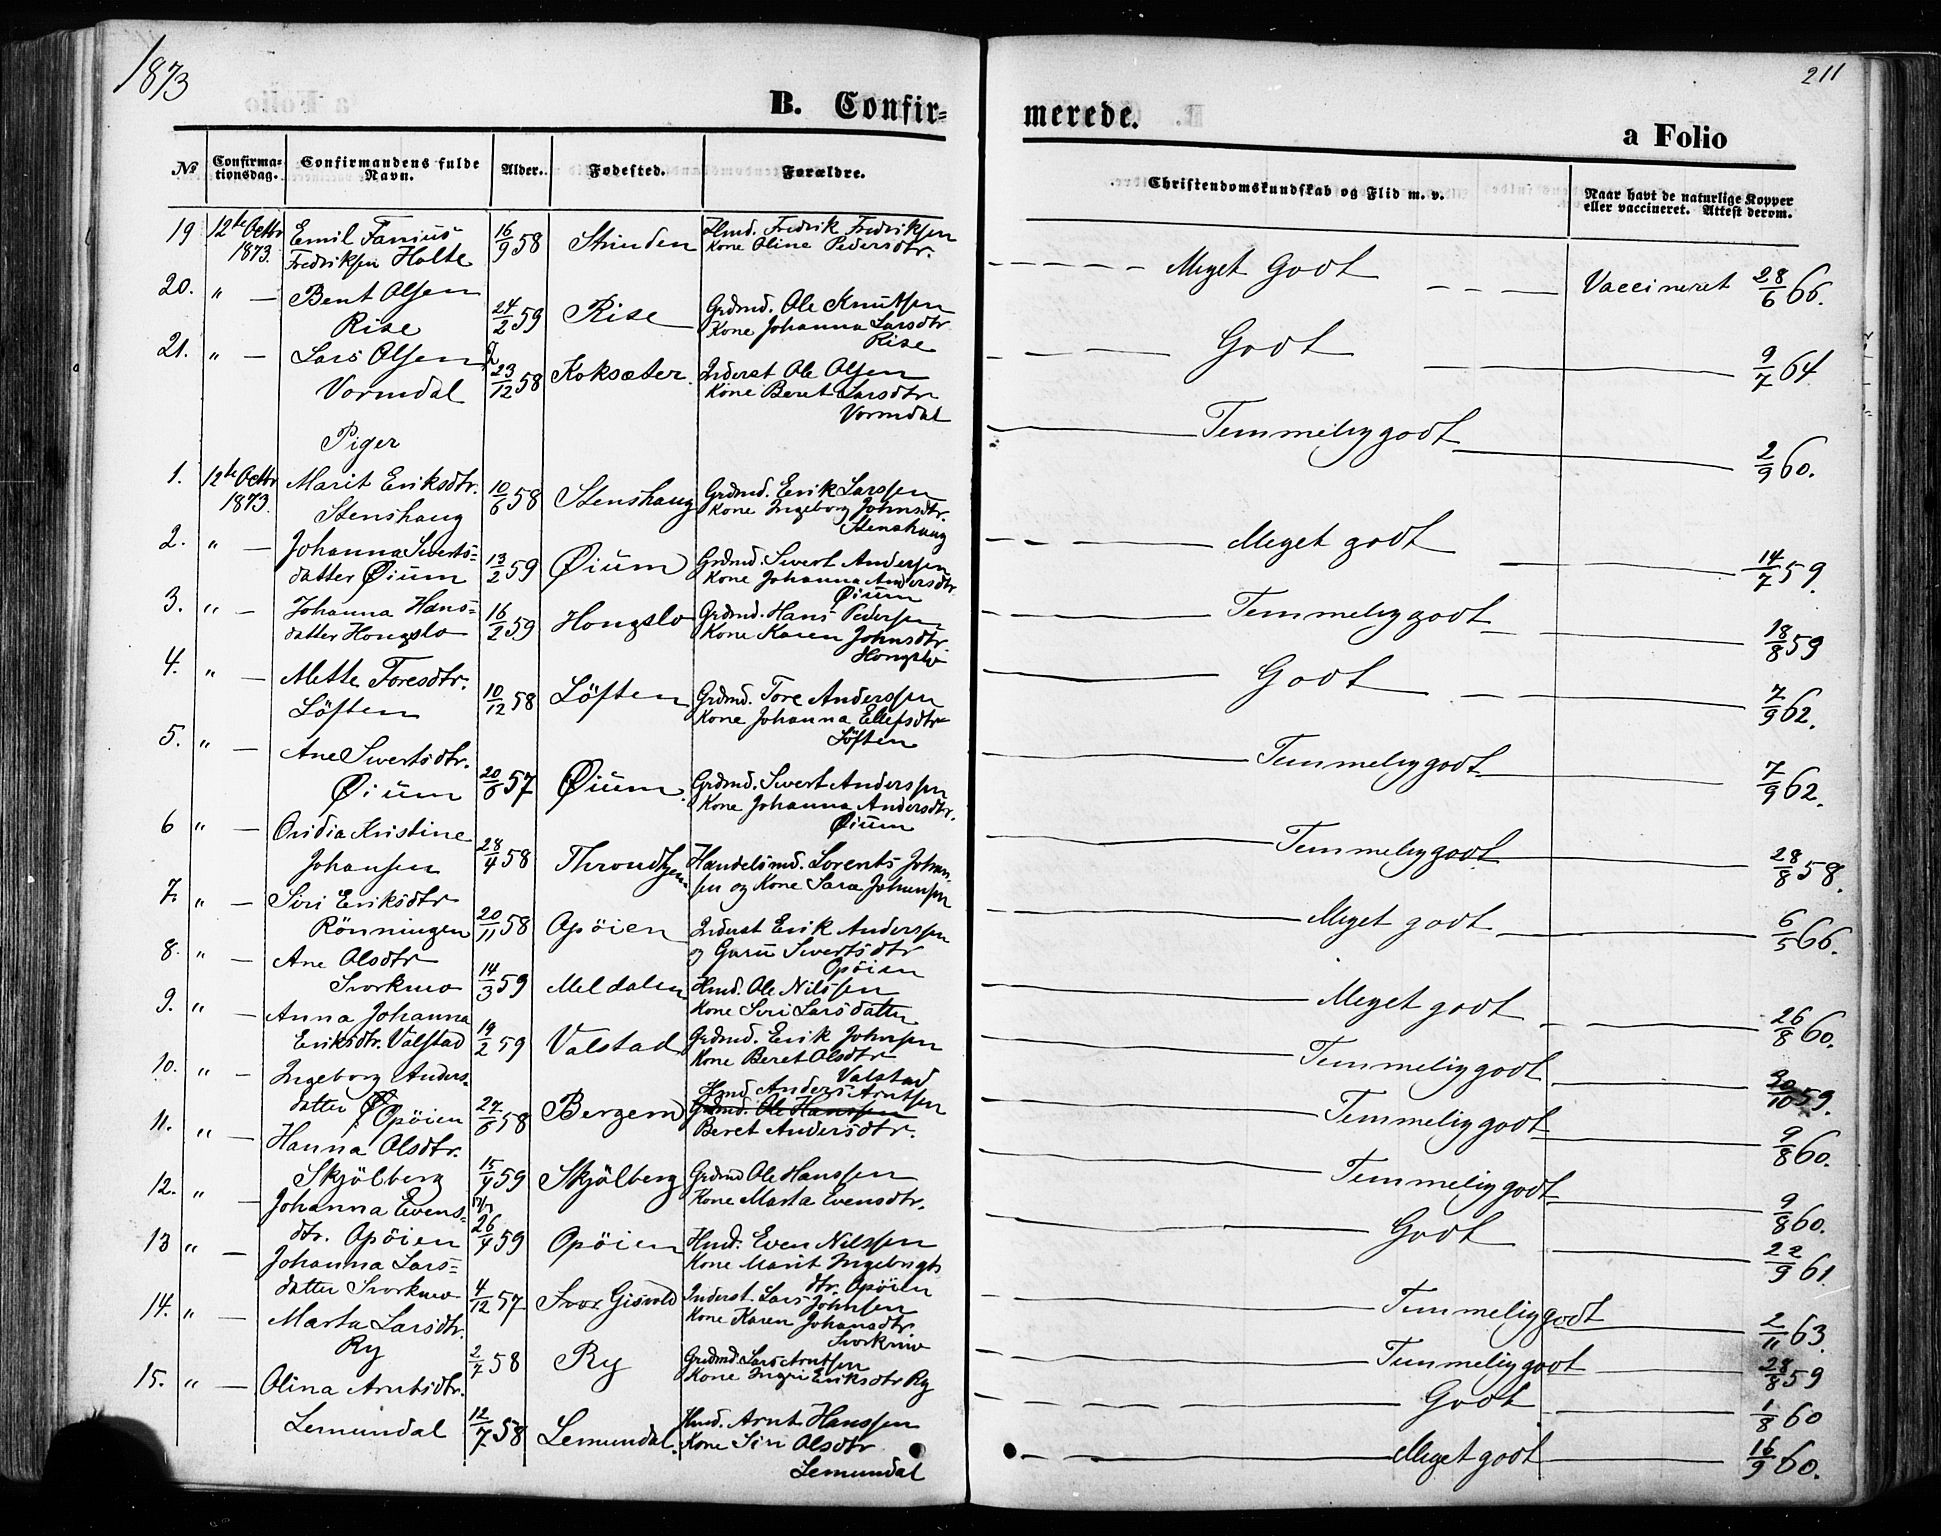 1873
B. Confir=
No
Confirma-
tionsdag.
Confirmandens fulde
Navn.
Alder.
Fødested.
Forældre.
19 12te Octbr 1873. Emil Fredriksen Holte 16/9 58 Strinden Hmd. Fredrik Fredriksen
Kone Oline Pedersdtr.
20. " — Bent Olsen
Rise 24/2 59 Rise Grdmd. Ole Knutsen
Kone Johanna Larsdtr.
Rise
21. " — Lars Olsen
Vormdal 23/12 58 Koksæter. Inderst Ole Olsen
Kone Beret Larsdtr
Vormdal
Piger
1. 12te Octbr 1873. Marit Eriksdtr.
Stenshaug 10/6 58 Stenshaug Grdmd. Erik Larssen
Kone Ingeborg Johnsdtr.
Stenshaug
2. " — Johanna Siverts=
datter Øium 13/2 59 Øium Grdmd. Sivert Andersen
Kone Johanna Andersdtr.
Øium
3. " — Johanna Hans=
datter Hongslo 16/2 59 Hongslo Grdmd. Hans Pedersen
Kone Karen Johnsdtr.
Hongslo
4. " — Mette Toresdtr.
Löften 10/12 58 Löften Grdmd. Tore Anderssen
Kone Johanna Ellefsdtr
Löften
5. " — Ane Sivertsdtr.
Øium 20/6 57 Øium. Grdmd. Sivert Anderssen
Kone Johanna Andersdtr.
Øium
6 " — Ovidia Kristine
Johansen 28/4 58 Throndhjem Handelsmd. Lorents Johan-
sen og Kone Sara Johansen
7. " — Siri Eriksdtr
Rönningen 20/11 58 Opöien Inderst Erik Anderssen
og Guru Sivertsdtr
Opöien
8. " — Ane Olsdtr
Svorkmo 14/3 59 Meldalen Hmd. Ole Nilssen
Kone Siri Larsdatter
9. " — Anna Johanna
Eriksdtr. Valstad 19/2 59 Valstad Grdmd. Erik Johnsen
Kone Beret Olsdtr
Valstad
10. " — Ingeborg Anders-
datter Opöien 27/6 58 Bergem Hmd. Anders Arntsen
Grdmd. Ole Hanssen
Beret Andersdtr.
11. " — Hanna Olsdtr.
Skjölberg 15/4 59 Skjölberg Grdmd Ole Hanssen
Kone Marta Evensdtr.
12. " — Johanna Evens=
dtr. Opöien 26/4 59 Opöien Hmd. Even Nilssen
Kone Marit Ingebrigts
dtr. Opöien
13 " — Johanna Lars=
datter Svorkmo 4/12 57 Inderst. Lars Johnsen
Kone Karen Johansdtr.
Svorkmo
14. " — Marta Larsdtr.
Ry 2/7 58 Ry Grdmd. Lars Arntsen
Kone Ingri Eriksdtr Ry
15. " — Olina Arntsdtr.
Lemundal 12/7 58 Lemundal. Hmd. Arnt Hanssen
Kone Siri Olsdtr
Lemundal
211
merede.
a Folio
Christendomskundskab og Flid m. v.
Naar havt de naturlige Kopper
eller vaccineret. Attest derom.
Meget Godt Vaccineret 28/6 66.
Godt 9/7 64
Temmelig godt 2/9 60.
Meget godt 14/7 59.
Temmelig godt 18/8 59
Godt 7/9 62.
Temmelig godt 7/9 62.
Temmelig godt 28/8 58.
Meget godt 6/5 66.
Meget godt 26/8 60.
Temmelig godt /10 59.
Temmelig godt 9/8 60.
Temmelig godt 9/8 60.
Godt 22/9 61
Temmelig godt 2/11 63.
Temmelig godt 28/8 59
Godt 1/8 60
Meget godt 16/9 60.